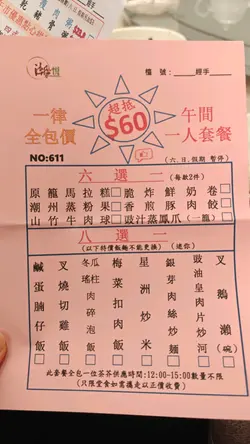 檯號：____經手____
一律
全包價
超抵
$60
午間
一人套餐
NO:611
(六.日.假期 暫停)
六選二(每款2件)
原籠馬拉糕□脆炸鮮奶卷□
潮州蒸粉果□香煎豚肉餃□
山竹牛肉球□豉汁蒸鳳爪(一籠)□
八選一
(以下特價飯麵不能更換) (迷你)
鹹蛋腩仔飯□
叉燒切雞飯□
冬瓜瑤柱肉碎泡飯□
梅菜扣肉飯□
星洲炒米□
銀芽肉絲炒麵□
豉油皇肉絲炒河□
叉鵝瀨(碗)□
此套餐全包一位茶芥供應時間:12:00-15:00數量不限
(只限堂食如需攜走以正價收費)